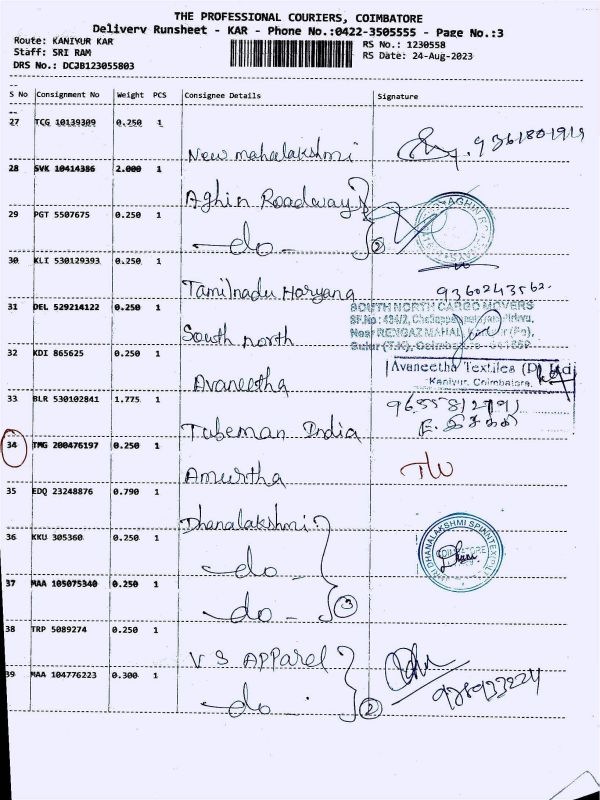 THE PROFESSIONAL COURIERS, COIMBATORE
Delivery Runsheet - KAR - Phone No.:0422-3505555 - Page No.:3
Route: KANIYUR KAR
RS No.: 1230558
Staff: SRI RAM
RS Date: 24-Aug-2023
DRS No.: DCJB123055803
S No Consignment No Weight PCS Consignee Details Signature
27 TCG 10139309 0.250 1
New mahalakshmi
9361801919
28 SVK 10414386 2.000 1
Aghin Roadways
29 PGT 5507675 0.250 1
-do- 2
30 KLI 530129393 0.250 1
Tamilnadu Haryana
9360243562.
31 DEL 529214122 0.250 1
SOUTH NORTH CARGO MOVERS
South north
32 KDI 865625 0.250 1
Avaneetha Textiles (P) Ltd
Kaniyur, Coimbatore.
Avaneetha
33 BLR 530102841 1.775 1
Tubeman India
34 TMG 200476197 0.250 1
Amurtha
35 EDQ 23248876 0.790 1
Dhanalakshmi
36 KKU 305360 0.250 1
do
37 MAA 105075340 0.250 1
do - 3
38 TRP 5089274 0.250 1
V S APParel
39 MAA 104776223 0.300 1
do - 2